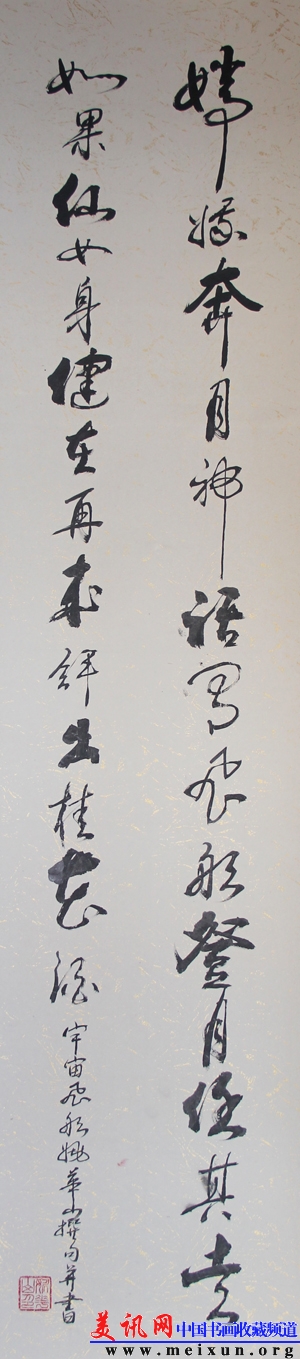 嫦娥奔月神话飞船登月任其走
如果仙女身健在再来捧出桂花酒
宇宙飞船姚華山撰句并書
美讯网 中国书画收藏频道
www.meixun.org